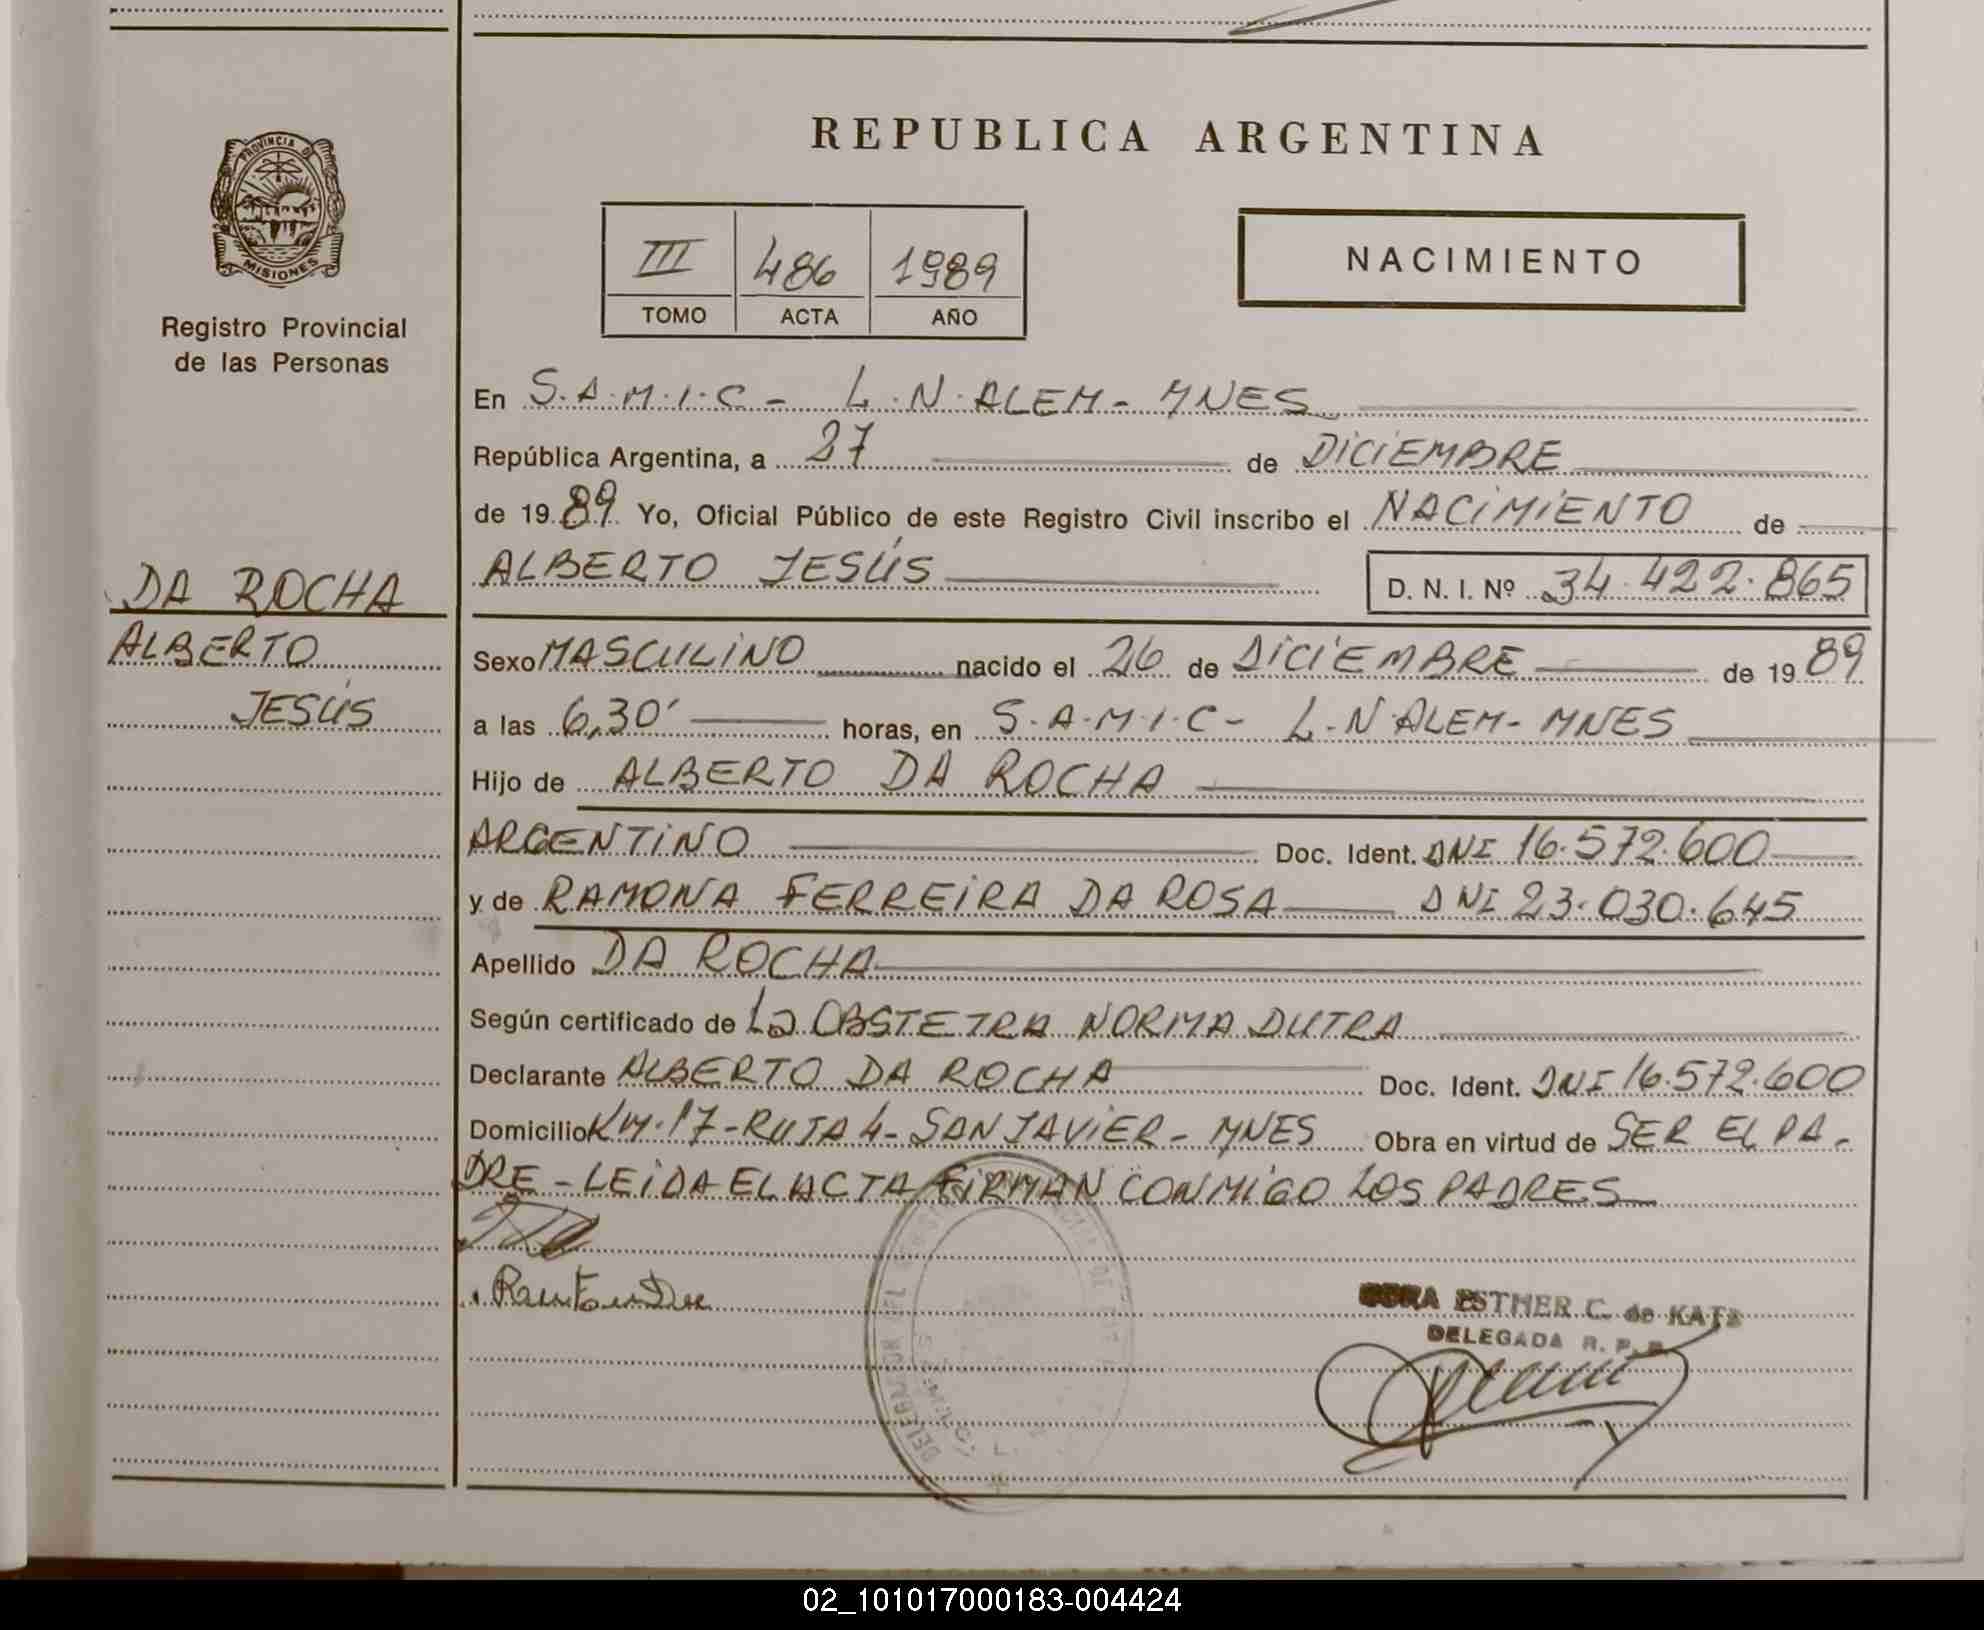 REPUBLICA ARGENTINA
PROVINCIA DE
MISIONES
Registro Provincial
de las Personas
III 486 1989
TOMO ACTA AÑO
NACIMIENTO
En S.A.M.I.C - L.N.ALEM - MNES
República Argentina, a 27 de DICIEMBRE
de 1989 Yo, Oficial Público de este Registro Civil inscribo el NACIMIENTO de
ALBERTO JESÚS D. N. I. Nº 34.422.865
DA ROCHA
ALBERTO
JESÚS
Sexo MASCULINO nacido el 26 de DICIEMBRE de 1989
a las 6,30' horas, en S.A.M.I.C - L.N ALEM - MNES
Hijo de ALBERTO DA ROCHA
ARGENTINO Doc. Ident. DNI 16.572.600
y de RAMONA FERREIRA DA ROSA DNI 23.030.645
Apellido DA ROCHA
Según certificado de La OBSTETRA NORMA DUTRA
Declarante ALBERTO DA ROCHA Doc. Ident. DNI 16.572.600
Domicilio KM.17 - RUTA 4 - SAN JAVIER - MNES Obra en virtud de SER EL PA-
DRE - LEIDA EL ACTA FIRMAN CONMIGO LOS PADRES
ESTHER C. de KATZ
DELEGADA R. P. P.
02_101017000183-004424